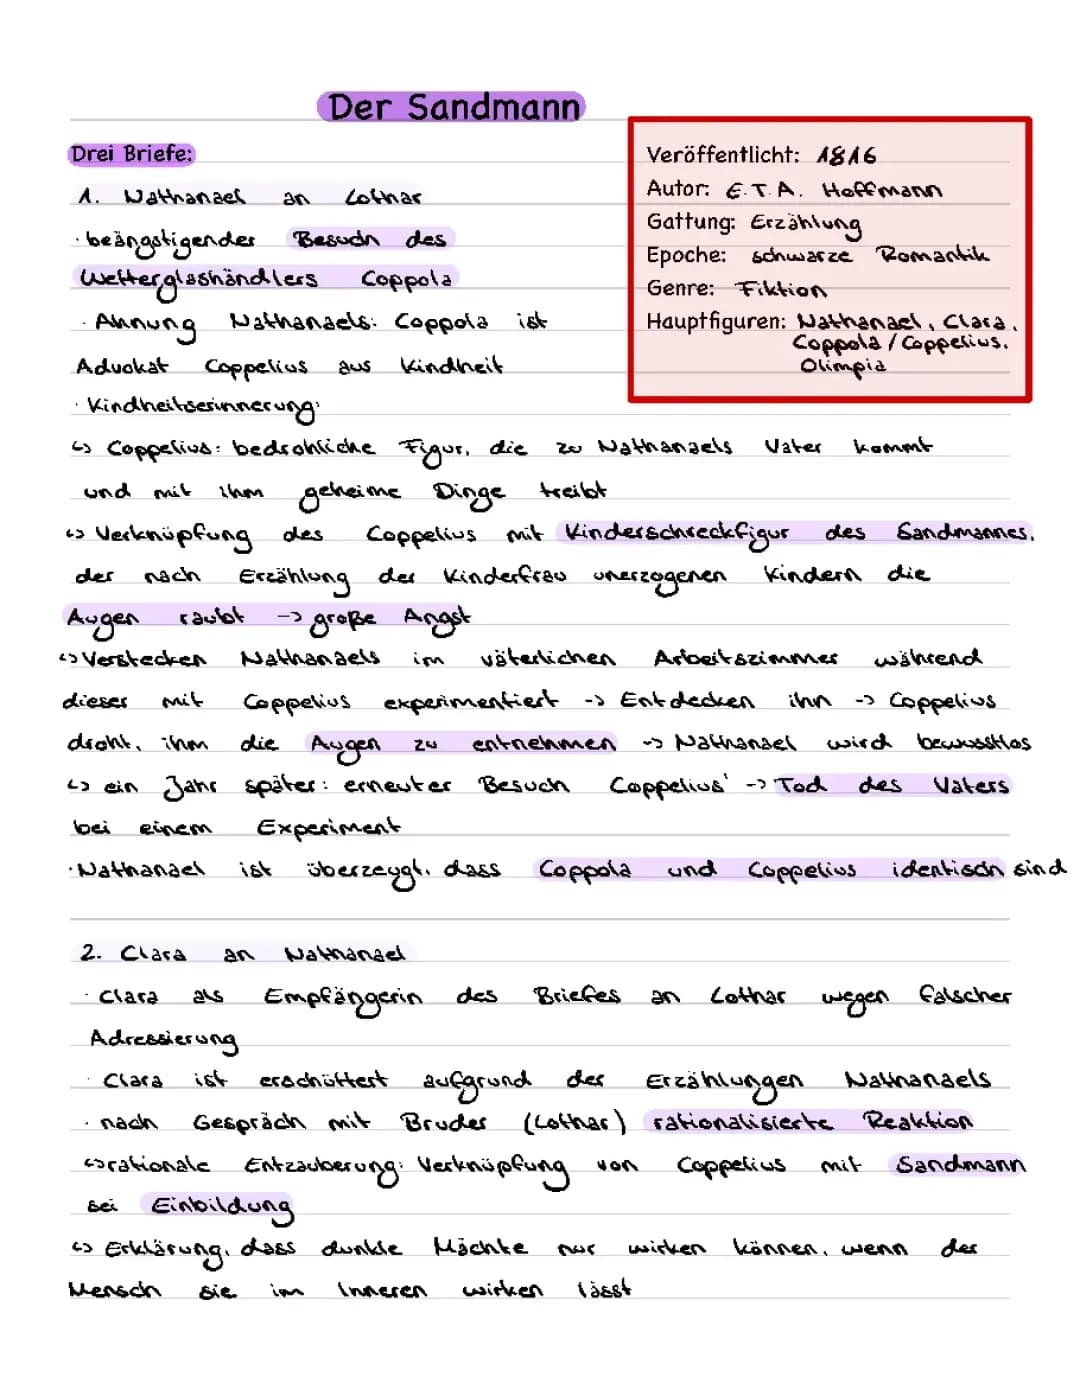 Der Sandmann
Drei Briefe:
1. Nathanael an Lothar
· beängstigender Besuch des
Wetterglashändlers Coppola
· Ahnung Nathanaels: Coppola ist
Advokat Coppelius aus Kindheit
· Kindheitserinnerung:
Veröffentlicht: 1816
Autor: E.T.A. Hoffmann
Gattung: Erzählung
Epoche: schwarze Romantik
Genre: Fiktion
Hauptfiguren: Nathanael, Clara,
Coppola / Coppelius,
Olimpia
↳ Coppelius: bedrohliche Figur, die zu Nathanaels Vater kommt
und mit ihm geheime Dinge treibt
↳ Verknüpfung des Coppelius mit Kinderschreckfigur des Sandmannes,
der nach Erzählung der Kinderfrau unerzogenen Kindern die
Augen raubt -> große Angst
↳ Verstecken Nathanaels im väterlichen Arbeitszimmer während
dieser mit Coppelius experimentiert -> Entdecken ihn -> Coppelius
droht, ihm die Augen zu entnehmen -> Nathanael wird bewusstlos
↳ ein Jahr später: erneuter Besuch Coppelius' -> Tod des Vaters
bei einem Experiment
· Nathanael ist überzeugt, dass Coppola und Coppelius identisch sind
2. Clara an Nathanael
· Clara als Empfängerin des Briefes an Lothar wegen falscher
Adressierung
· Clara ist erschüttert aufgrund der Erzählungen Nathanaels
· nach Gespräch mit Bruder (Lothar) rationalisierte Reaktion
↳ rationale Entzauberung: Verknüpfung von Coppelius mit Sandmann
sei Einbildung
↳ Erklärung, dass dunkle Mächte nur wirken können, wenn der
Mensch sie im Inneren wirken lässt